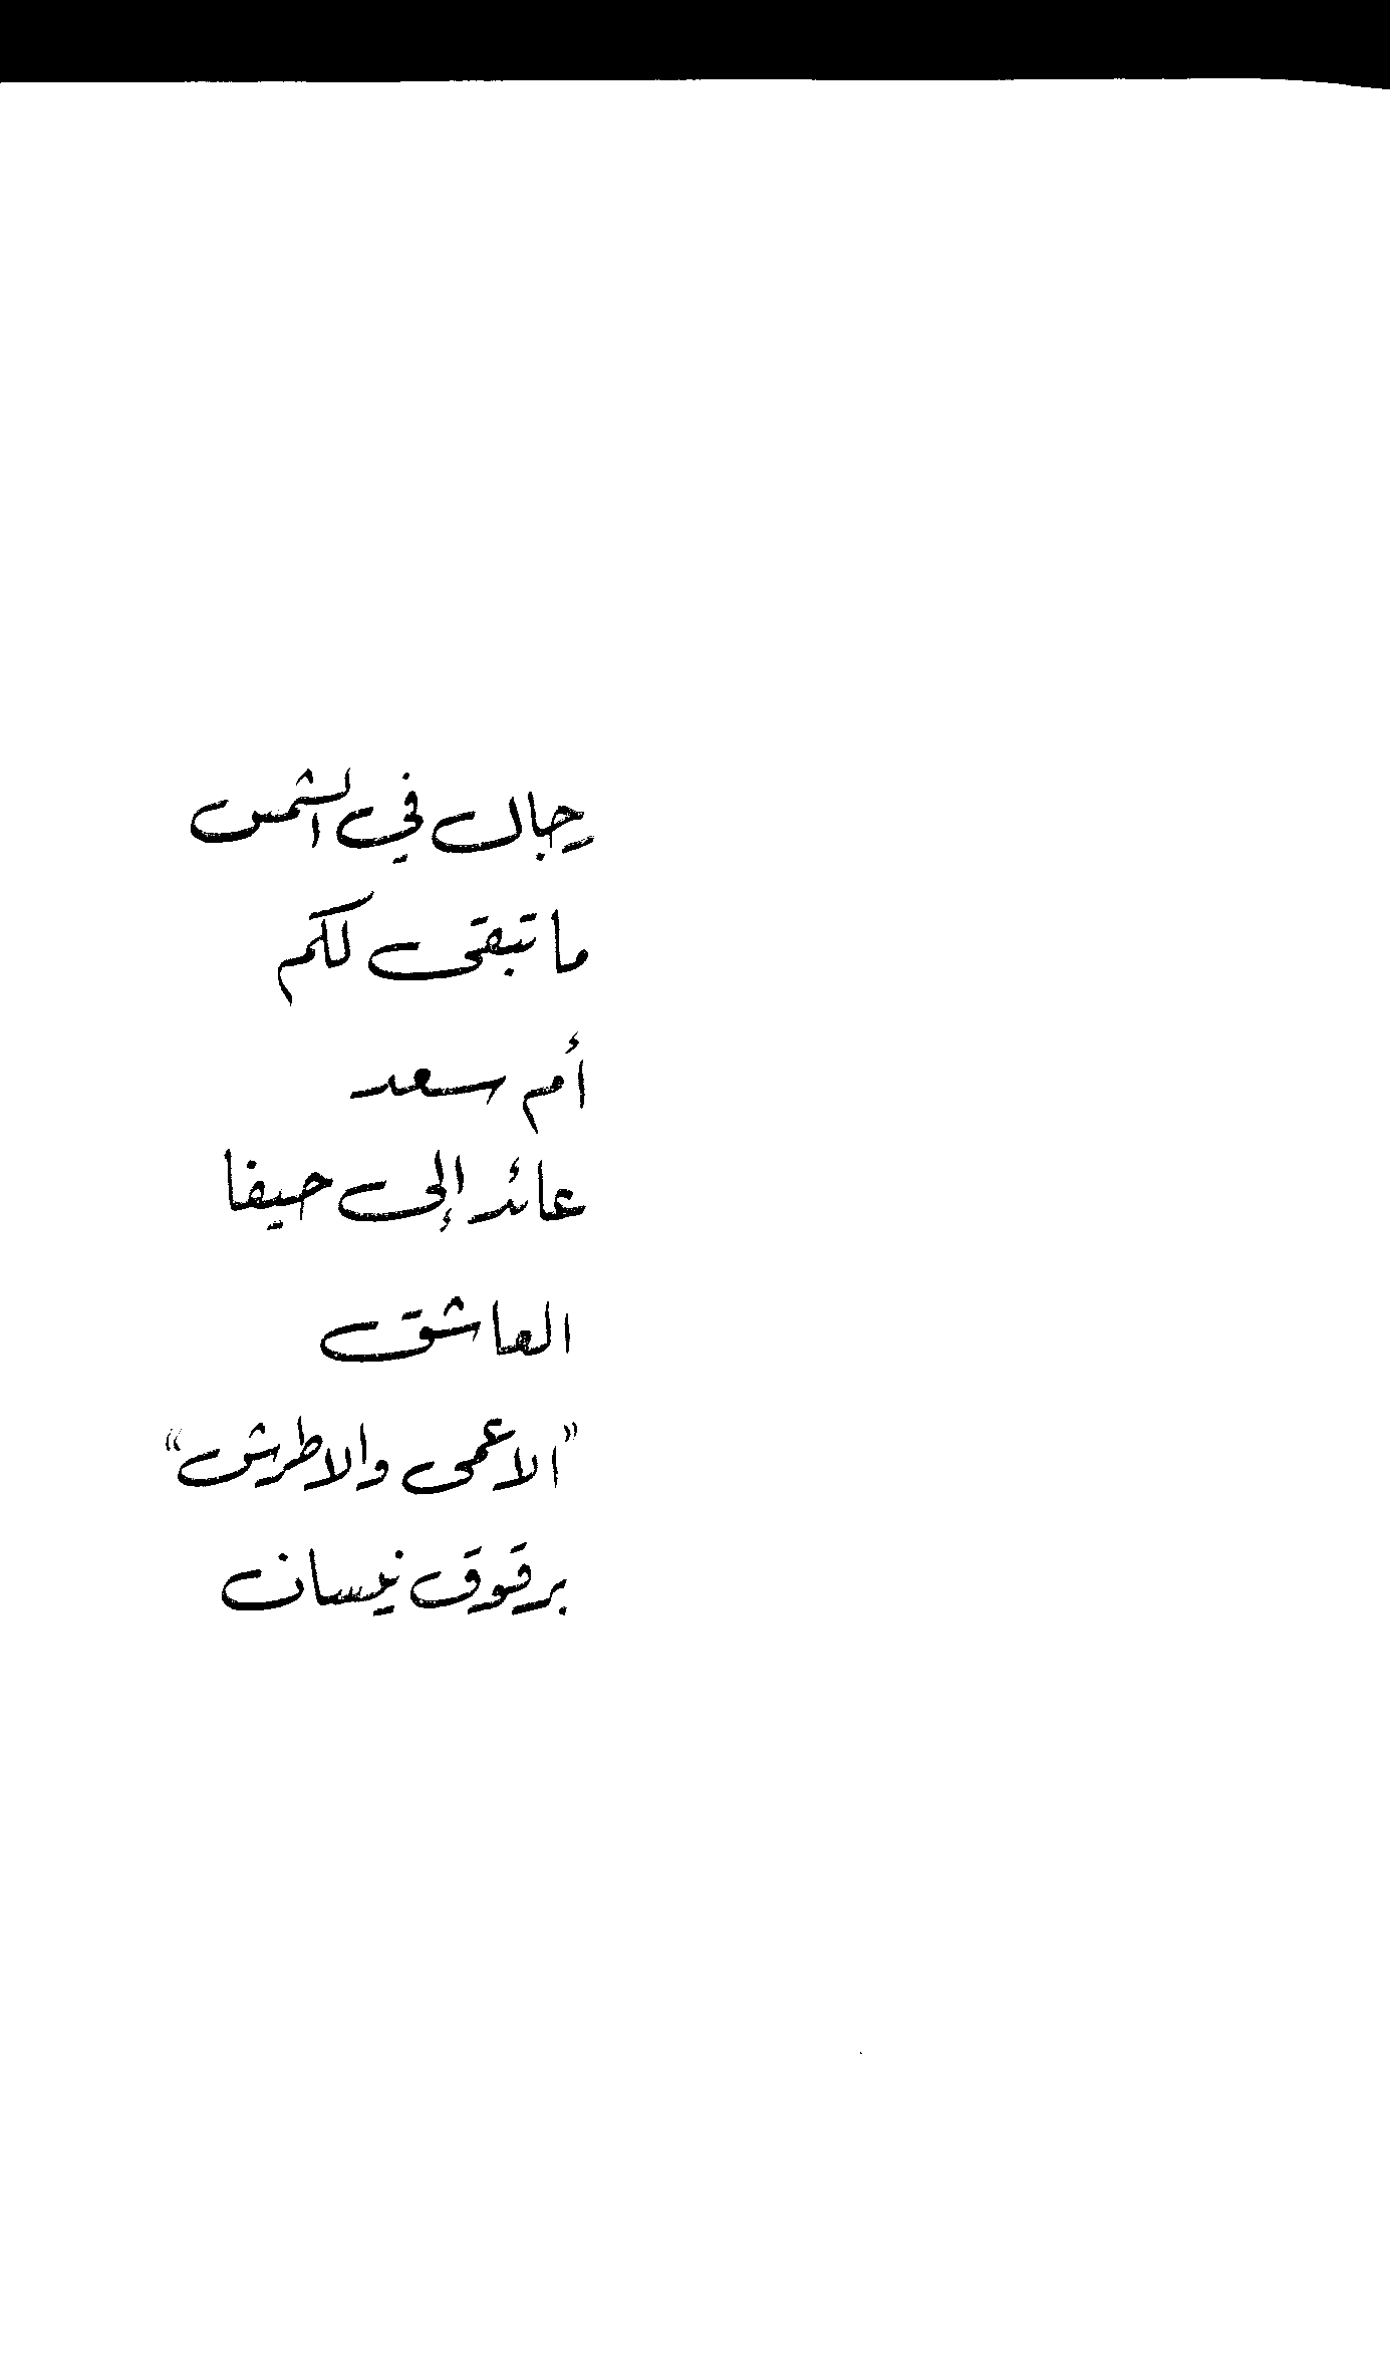 رجال في الشمس
ما تبقى لكم
أم سعد
عائد إلى حيفا
العاشق
"الاعمى والاطرش"
برقوق نيسان